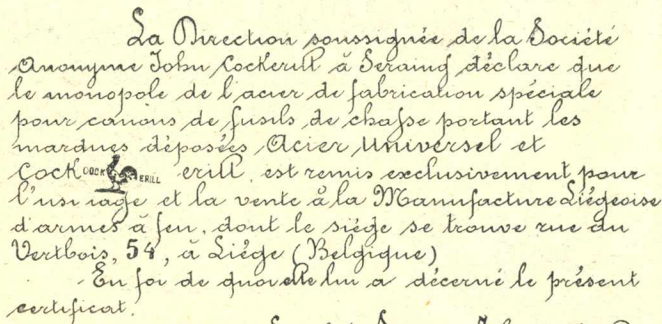 La Direction soussignée de la Société
Anonyme John Cockerill à Seraing déclare que
le monopole de l'acier de fabrication spéciale
pour canons de fusils de chasse portant les
marques déposées Acier Universel et
Cock COCK ERILL erill, est remis exclusivement pour
l'usinage et la vente à la Manufacture Liégeoise
d'armes à feu, dont le siége se trouve rue du
Vertbois, 54, à Liége (Belgique)
En foi de quoi elle lui a décerné le présent
certificat.